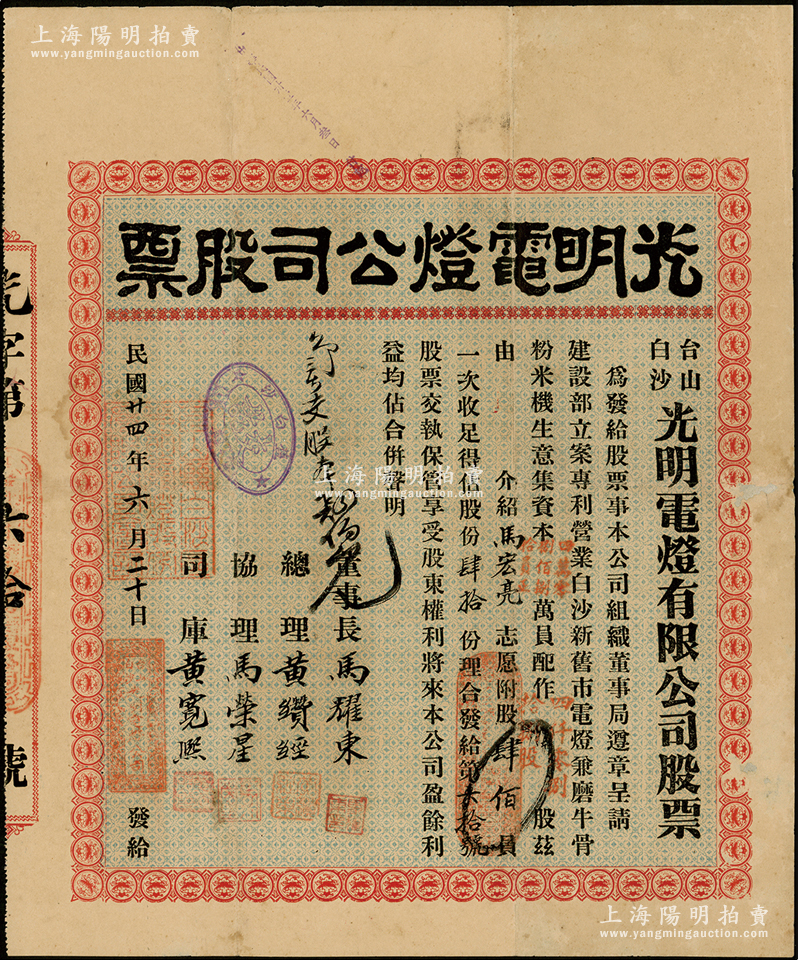 上海陽明拍賣
www.yangmingauction.com
光明電燈公司股票
台山白沙光明電燈有限公司股票
為發給股票事本公司組織董事局遵章呈請
建設部立案專利營業白沙新舊市電燈兼磨牛骨
粉米機生意集資本 萬員配作 股茲
四萬零捌佰捌拾員正
四千零捌拾捌股
由 介紹馬宏亮志愿附股肆佰員
一次收足得佔股份肆拾份理合發給第 拾號
股票交執保管享受股東權利將來本公司盈餘利
益均佔合併聲明
董事長馬耀東
總理黃纘經
協理馬榮星
司庫黃寬熙
民國廿四年六月二十日 發給
光字第六拾 號
上海陽明拍賣
www.yangmingauction.com